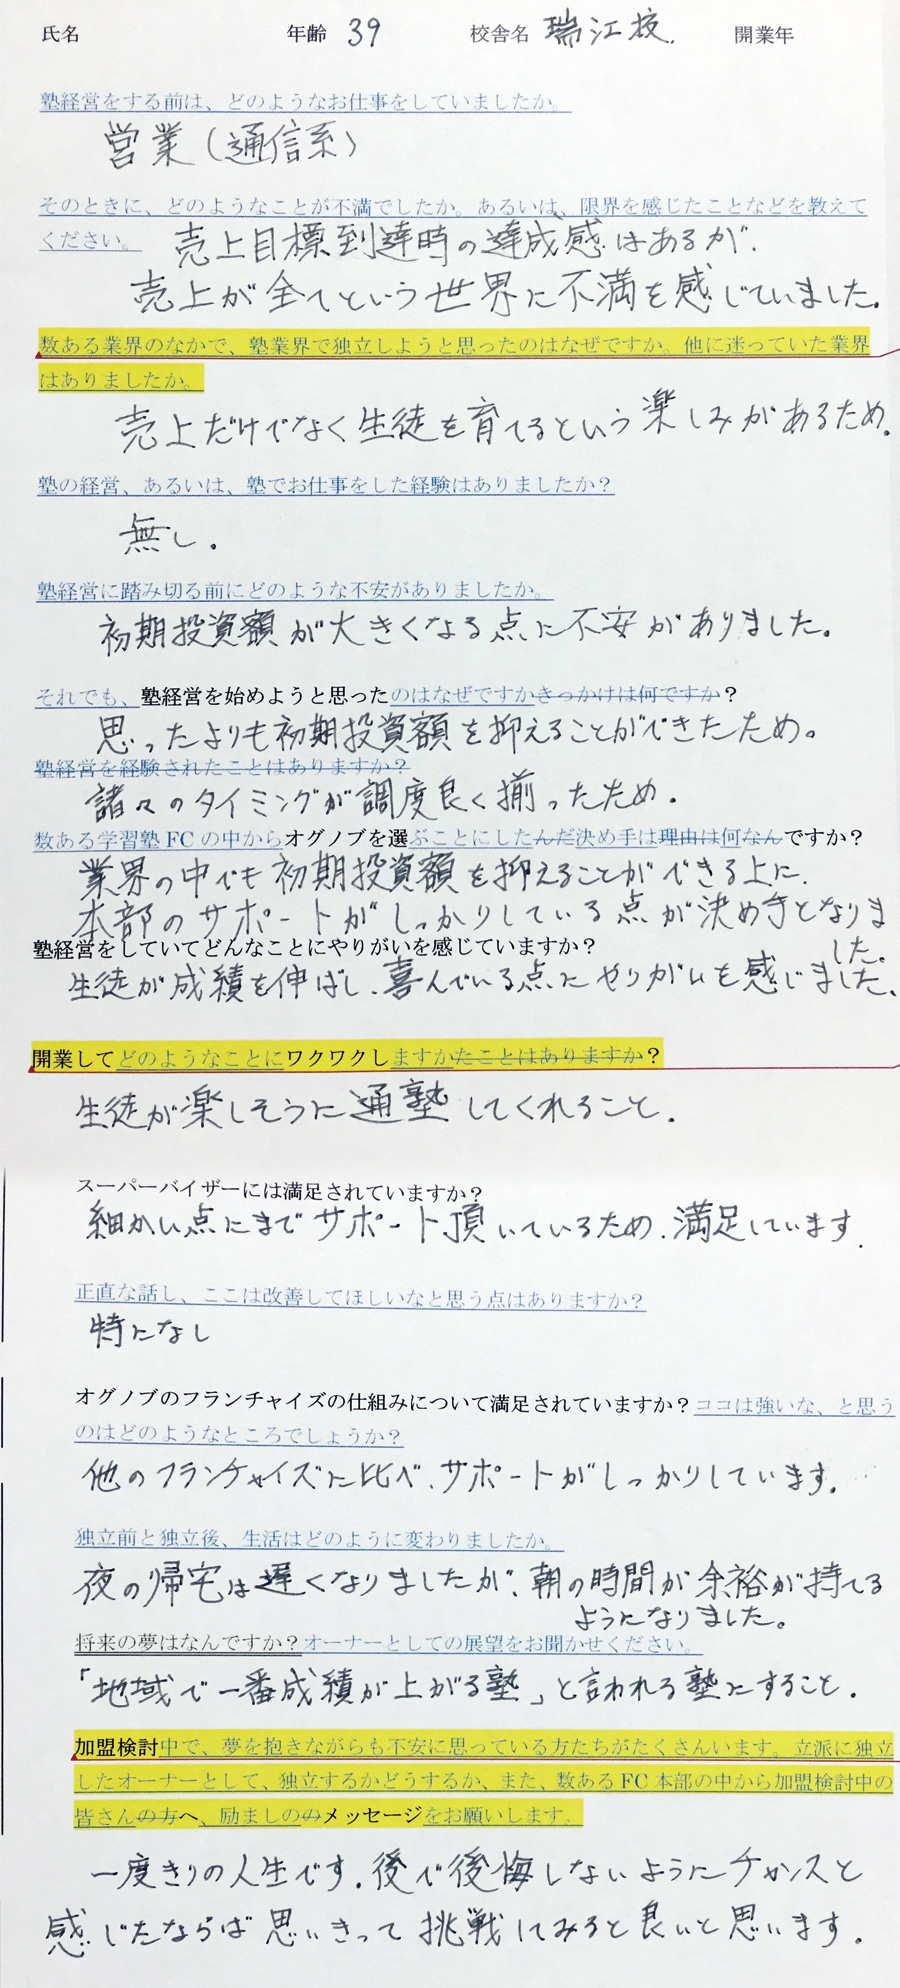 氏名 年齢 39 校舎名 瑞江校. 開業年
塾経営をする前は、どのようなお仕事をしていましたか。
営業(通信系)
そのときに、どのようなことが不満でしたか。あるいは、限界を感じたことなどを教えて
ください。 売上目標到達時の達成感はあるが、
売上が全てという世界に不満を感じていました。
数ある業界のなかで、塾業界で独立しようと思ったのはなぜですか。他に迷っていた業界
はありましたか。
売上だけでなく生徒を育てるという楽しみがあるため。
塾の経営、あるいは、塾でお仕事をした経験はありましたか?
無し。
塾経営に踏み切る前にどのような不安がありましたか。
初期投資額が大きくなる点に不安がありました。
それでも、塾経営を始めようと思ったのはなぜですかきっかけは何ですか?
思ったよりも初期投資額を抑えることができたため。
塾経営を経験されたことはありますか?
諸々のタイミングが調度良く揃ったため。
数ある学習塾FCの中からオグノブを選ぶことにしたんだ決め手は理由は何なんですか?
業界の中でも初期投資額を抑えることができる上に、
本部のサポートがしっかりしている点が決め手となりま
した。
塾経営をしていてどんなことにやりがいを感じていますか?
生徒が成績を伸ばし、喜んでいる点にやりがいを感じました、
開業してどのようなことにワクワクしますかたことはありますか?
生徒が楽しそうに通塾してくれること.
スーパーバイザーには満足されていますか?
細かい点にまでサポート頂いているため、満足しています.
正直な話し、ここは改善してほしいなと思う点はありますか?
特になし
オグノブのフランチャイズの仕組みについて満足されていますか?ココは強いな、と思う
のはどのようなところでしょうか?
他のフランチャイズに比べ、サポートがしっかりしています。
独立前と独立後、生活はどのように変わりましたか。
夜の帰宅は遅くなりましたが、朝の時間が余裕が持てる
ようになりました。
将来の夢はなんですか?オーナーとしての展望をお聞かせください。
「地域で一番成績が上がる塾」と言われる塾にすること.
加盟検討中で、夢を抱きながらも不安に思っている方たちがたくさんいます。立派に独立
したオーナーとして、独立するかどうするか、また、数あるFC本部の中から加盟検討中の
皆さんの方へ、励ましののメッセージをお願いします。
一度きりの人生です.後で後悔しないようにチャンスと
感じたならば思いきって挑戦してみると良いと思います。